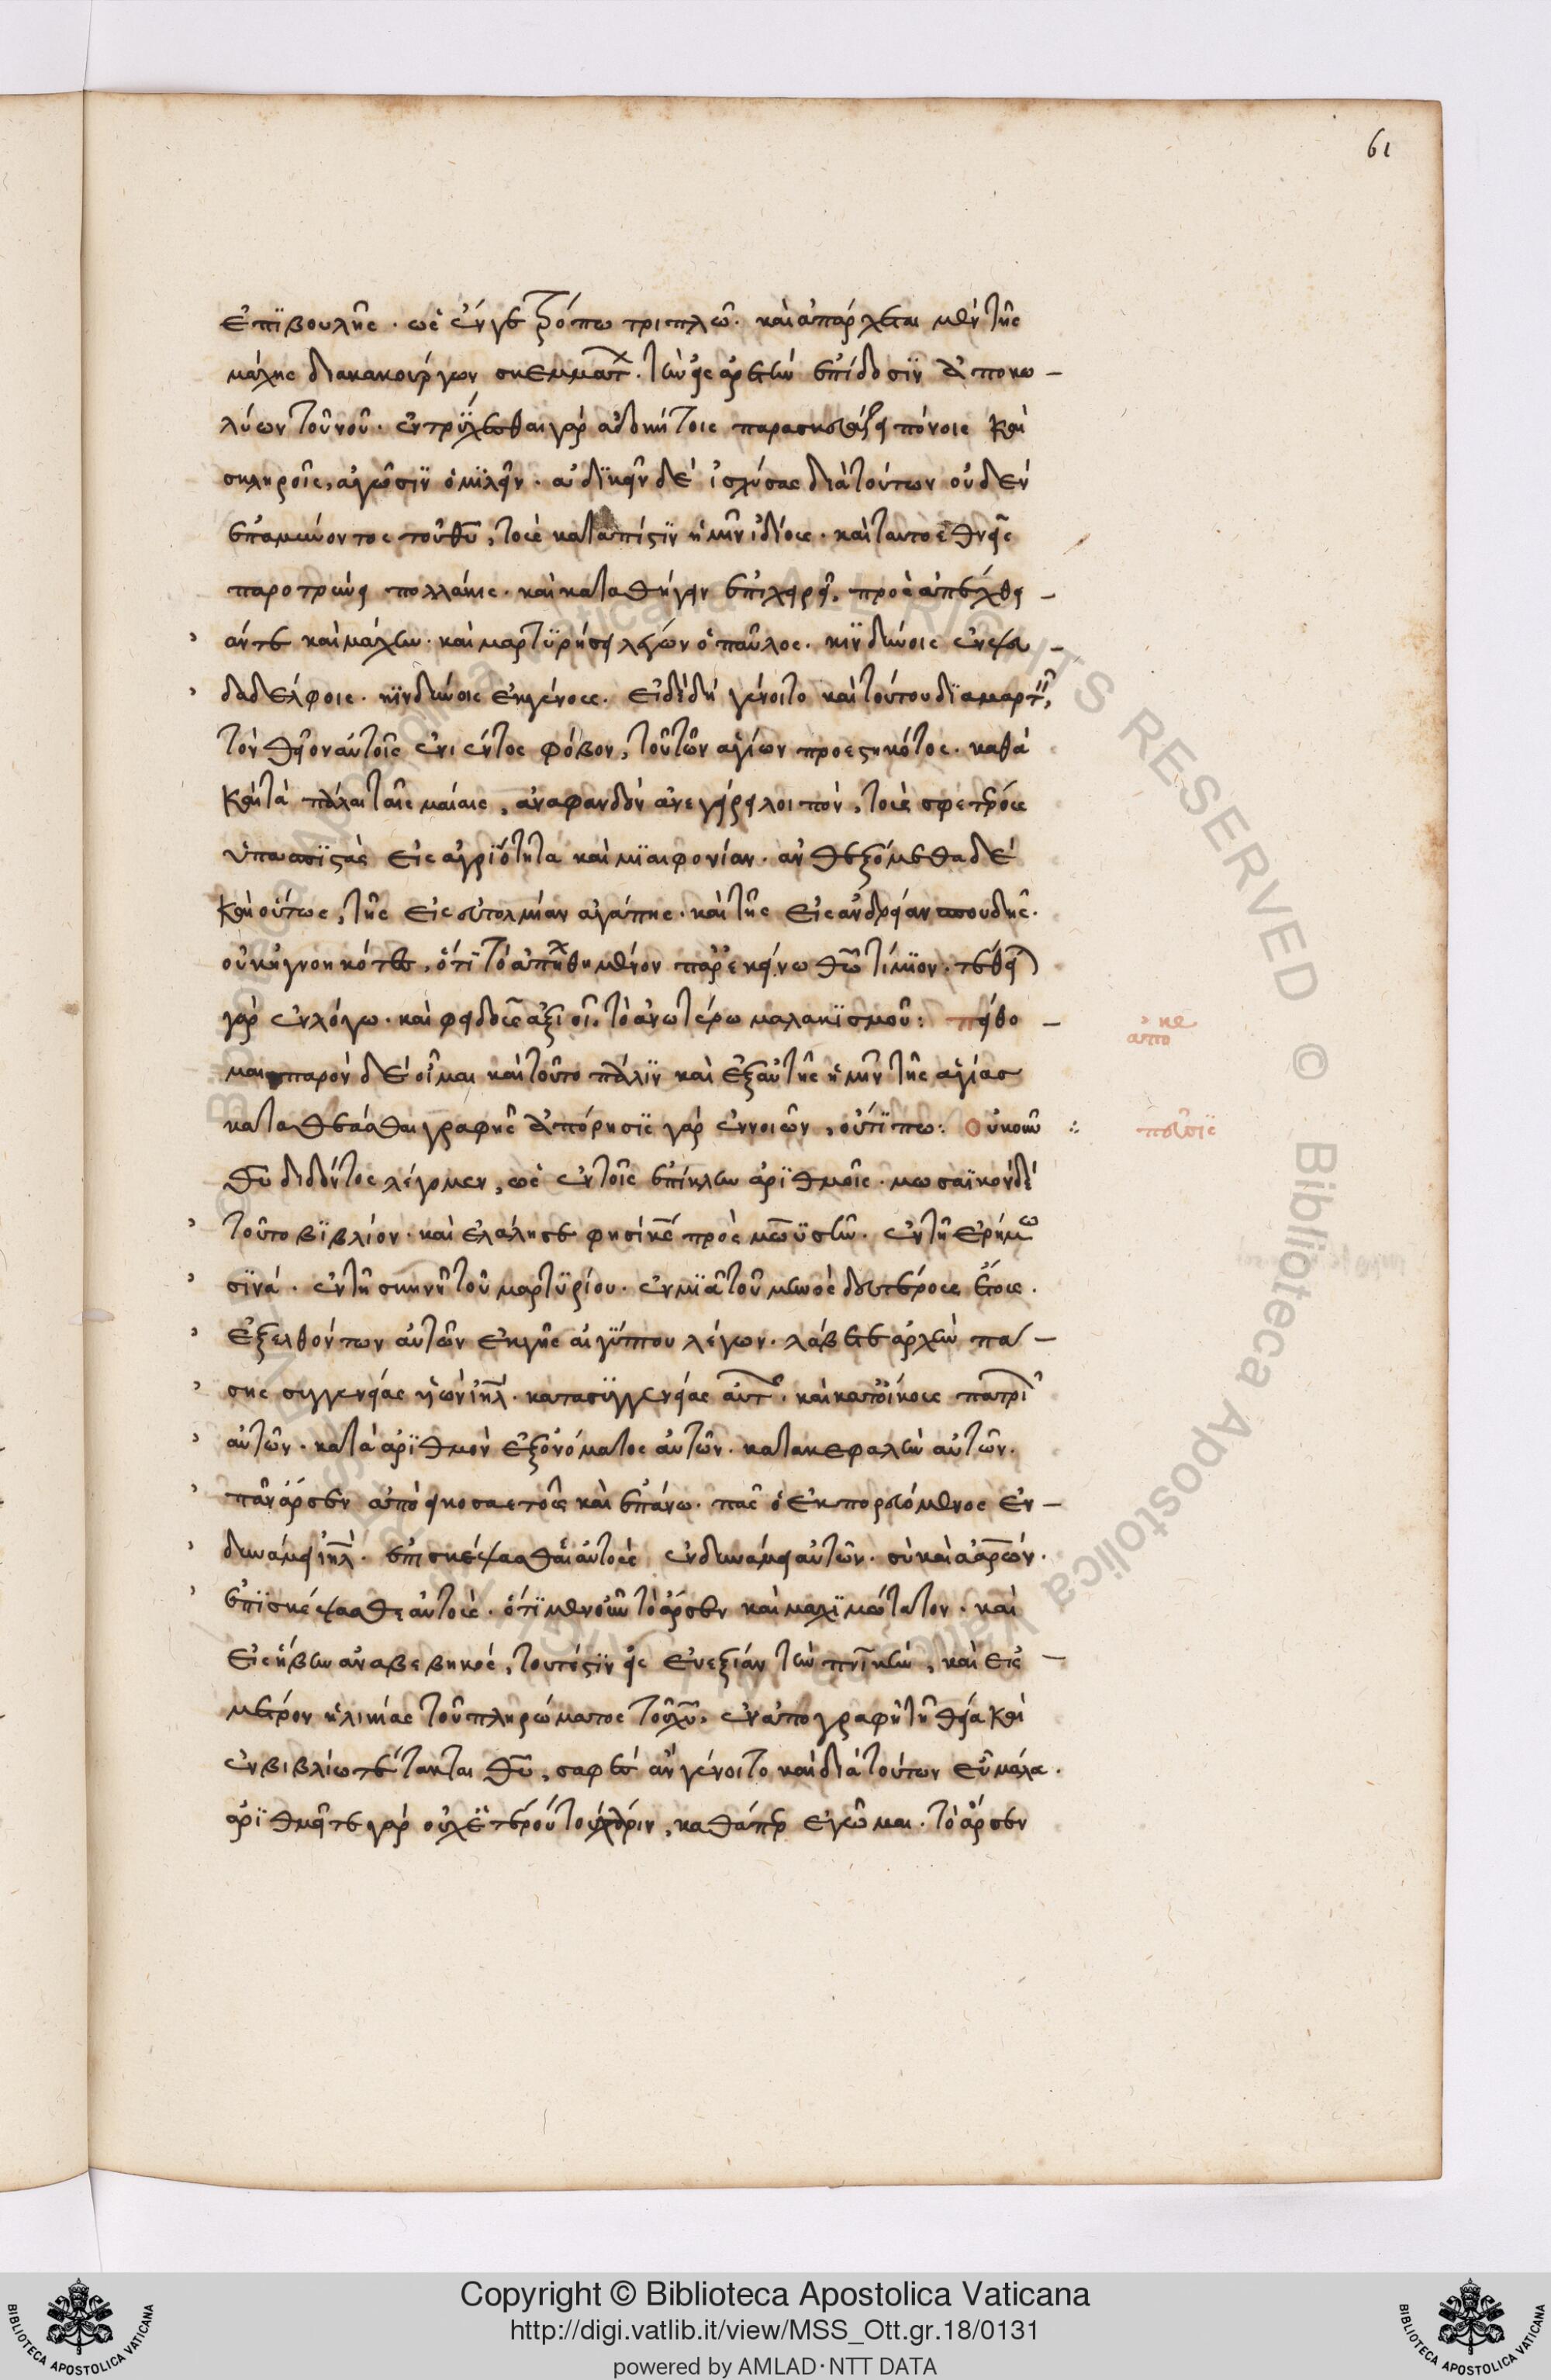 61
ἐπϊβουλῆς. ὡς ἔν γε τρόπω τριπλῶ. καὶ ἀπάρχεται μὲν τῆς
μάχης διακακούργων σκεμμάτ. τὴν εἰς ἀρετὴν ἐπίδοσϊν ἀποκω –
λύων τοῦ νοῦ. ἐντρϋχεσθαι γὰρ ἀδοκήτοις παρασκευάζει πόνοις καὶ
σκληροῖς, ἀγῶσϊν ὁμϊλεῖν. ἀδϊκεῖν δὲ ἰσχύσας διὰ τούτων οὐδὲν
ἐπαμύνοντος τοῦ θῦ, τοὺς κατὰ πίστϊν ἡμῖν ἰδίους. καὶ τὰ τοῖς ἔθνεσι
παροτρύνει πολλάκις. καὶ καταθήγειν ἐπιχειρεῖ, πρὸς ἀπέχθει –
άν τε καὶ μάχην. καὶ μαρτϋρήσει λέγων ὁ παῦλος. κϊνδύνοις ἐν ψευ –
δαδέλφοις. κϊνδύνοις ἐκ γένους. εἰ δὲ δὴ γένοιτο καὶ τούτου δϊαμαρτ
τὸν θεῖον αὐτοῖς ἐνιέντος φόβον, τοῦ τῶν ἁγίων προεστηκότος. καθὰ
καὶ τὰ πάλαι ταῖς μαίαις, ἀναφανδὸν ἀνεγείρει λοιπὸν, τοὺς σφετέρους
ὑπασπϊστὰς εἰς ἀγριότητα καὶ μϊαιφονίαν. ἀνθεξόμεθα δὲ
καὶ οὕτως, τῆς εἰς εὐτολμίαν ἀγάπης. καὶ τῆς εἰς ἀνδρείαν σπουδῆς.
οὐκ ἠγνοηκότες, ὅτϊ τὸ ἀπηχθημένον παρ' ἐκείνω θῶ τίμϊον. τεθεῖ
γὰρ ἐν λόγω. καὶ φειδοῦς ἀξιοῖ, τὸ ἀνωτέρω μαλακϊσμοῦ: πείθο –
μαι παρὸν δὲ οἶμαι καὶ τοῦτο πάλϊν καὶ ἐξ αὐτῆς ἡμῖν τῆς ἁγίας
καταθεᾶσθαι γραφῆς ἀπόρησϊς γὰρ ἐννοιῶν, οὔτϊ πω: Οὐκοῦν
θῦ διδόντος λέγομεν, ὡς ἐν τοῖς ἐπίκλην ἀρϊθμοῖς. μωσαϊκὸν δὲ
τοῦτο βϊβλίον. καὶ ἐλάλησε φησὶ κς πρὸς μωϋσῆν. ἐν τῆ ἐρήμω
σϊνά. ἐν τῆ σκηνῆ τοῦ μαρτϋρίου. ἐν μϊᾶ τοῦ μηνὸς δευτέρους ἔτους.
ἐξελθόντων αὐτῶν ἐκ γῆς αἰγύπτου λέγων. λάβετε ἀρχὴν πά –
σης συγγενείας ϋἱῶν ἰηλ. κατὰ σϋγγενείας αὐτ. καὶ κατ' οἴκους πατρι
αὐτῶν. κατὰ ἀρϊθμὸν ἐξ ὀνόματος αὐτῶν. κατὰ κεφαλὴν αὐτῶν.
πᾶν ἄρσεν ἀπὸ εἰκοσαετοῦς καὶ ἐπάνω. πᾶς ὁ ἐκπορευόμενος ἐν –
δυνάμει ἰηλ. ἐπισκέψασθαι αὐτοὺς ἐν δυνάμει αὐτῶν. σὺ καὶ ἀαρών.
ἐπϊσκέψασθε αὐτούς. ὅτϊ μὲν οὖν τὸ ἄρσεν καὶ μαχϊμώτατον. καὶ
εἰς ἥβην ἀναβεβηκός, τουτέστϊν εἰς εὐεξίαν τὴν πνϊκὴν, καὶ εἰς –
μέτρον ἡλικίας τοῦ πληρώματος τοῦ χῦ, ἐν ἀπογραφῆ τῆ θεία καὶ
ἐν βιβλίω τέτακται θῦ, σαφὲς ἂν γένοιτο καὶ διὰ τούτων εὖ μάλα.
ἀρϊθμεῖται γὰρ οὐχ ἑτέρου του χάριν, καθάπερ ἐγῶμαι. τὸ ἄρσεν
κς
απο
Copyright © Biblioteca Apostolica Vaticana
http://digi.vatlib.it/view/MSS_Ott.gr.18/0131
powered by AMLAD·NTT DATA
BIBLIOTECA APOSTOLICA VATICANA
BIBLIOTECA APOSTOLICA VATICANA